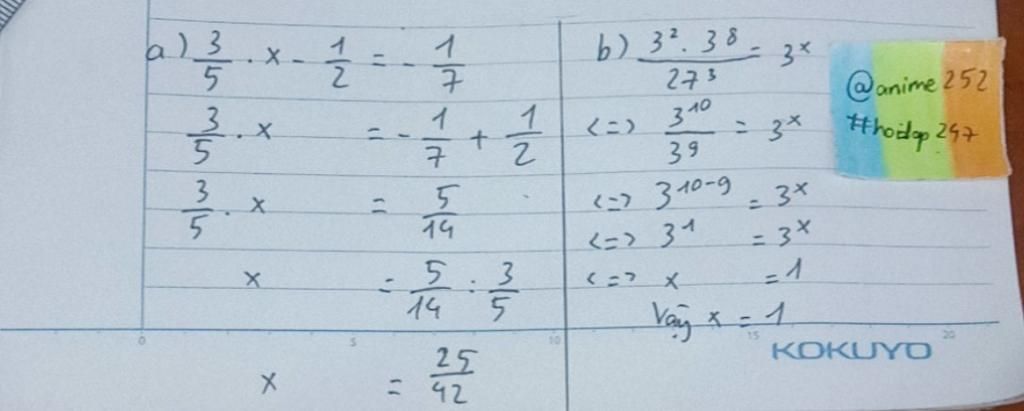 a) 3/5 . x - 1/2 = - 1/7
3/5 . x = - 1/7 + 1/2
3/5 . x = 5/14
x = 5/14 : 3/5
x = 25/42
b) 3² . 3⁸ / 27³ = 3ˣ
<=> 3¹⁰/3⁹ = 3ˣ
<=> 3¹⁰⁻⁹ = 3ˣ
<=> 3¹ = 3ˣ
<=> x = 1
Vậy x = 1
@anime252
#hoidap247
0 5 10 15 20
KOKUYO